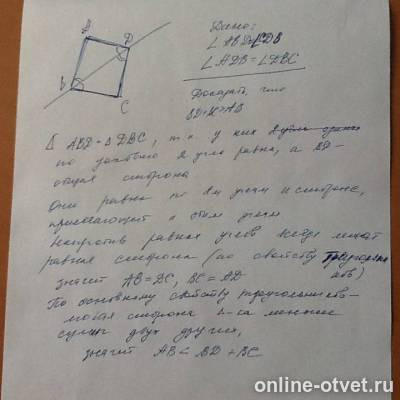 A
D
B
C
Дано:
∠ABD=∠CDB
∠ADB=∠DBC
Доказать, что
BD+BC>AB
Δ ABD = Δ DBC, т к у них
по условию 2 угла равны, а BD-
общая сторона
Они равны по 2м углам и стороне,
прилежащей к этим углам
Напротив равных углов всегда лежат
равные стороны (по свойству треугольников)
значит AB=DC, BC=AD
По основному свойству треугольников-
любая сторона меньше
суммы двух других,
значит AB < BD + BC
online-otvet.ru